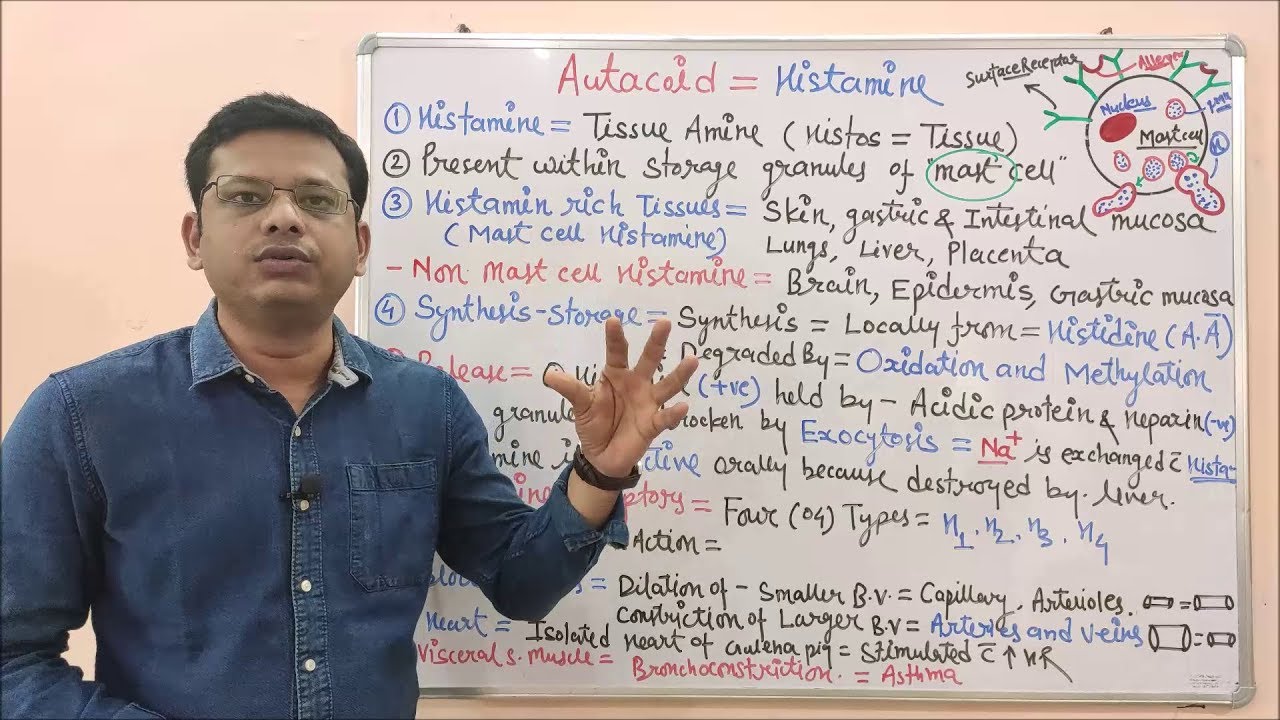 Autacoid = Histamine
Surface Receptor
Allergen
Nucleus
Mast cell
① Histamine = Tissue Amine (Histos = Tissue)
② Present within storage granules of "mast cell"
③ Histamin rich Tissues = Skin, gastric & Intestinal mucosa
(Mast cell Histamine) Lungs, Liver, Placenta
- Non Mast cell Histamine = Brain, Epidermis, Gastric mucosa
④ Synthesis-Storage = Synthesis = Locally from = Histidine (A.A)
= Degraded By = Oxidation and Methylation
Release = (+ve) held by - Acidic protein & Heparin (-ve)
by Exocytosis = Na+ is exchanged c̄ Hista
orally because destroyed by liver.
= Four (04) Types = H1, H2, H3, H4
Action =
= Dilation of - Smaller B.V. = Capillary, Arterioles.
Constriction of Larger B.V = Arteries and Veins
Heart = Isolated heart of Guinea pig = Stimulated c̄ ↑ HR
Visceral S. Muscle = Bronchoconstriction. = Asthma